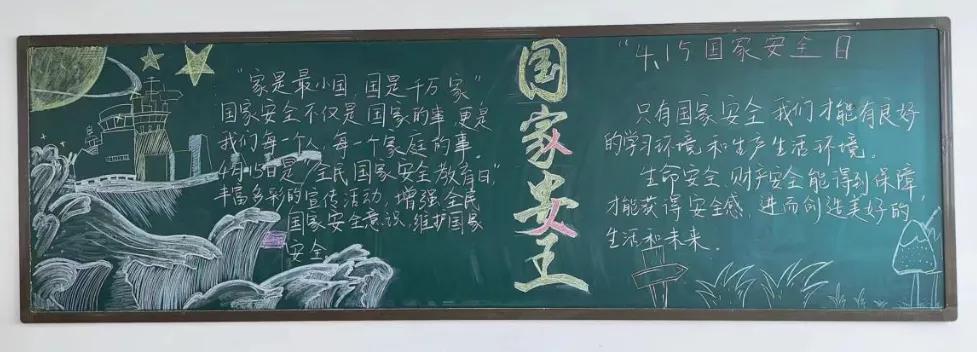 “家是最小国,国是千万家”
国家安全不仅是国家的事,更是
我们每一个人,每一个家庭的事。
4月15日是“全民国家安全教育日”,
丰富多彩的宣传活动,增强全民
国家安全意识,维护国家
安全
国家安王
“4.15国家安全日
只有国家安全我们才能有良好
的学习环境和生产生活环境。
生命安全,财产安全能得到保障,
才能获得安全感,进而创造美好的
生活和未来。